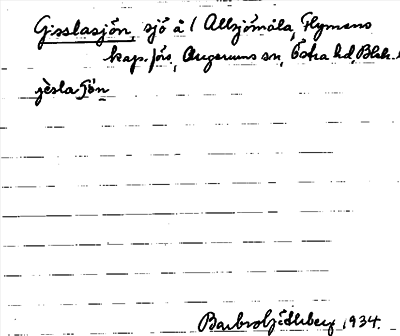 Gisslasjön, sjö å 1 Allsjömåla, Flymens
kap. förs., Augerums sn, Östra hd, Blek.
Barbro Söderberg 1934.